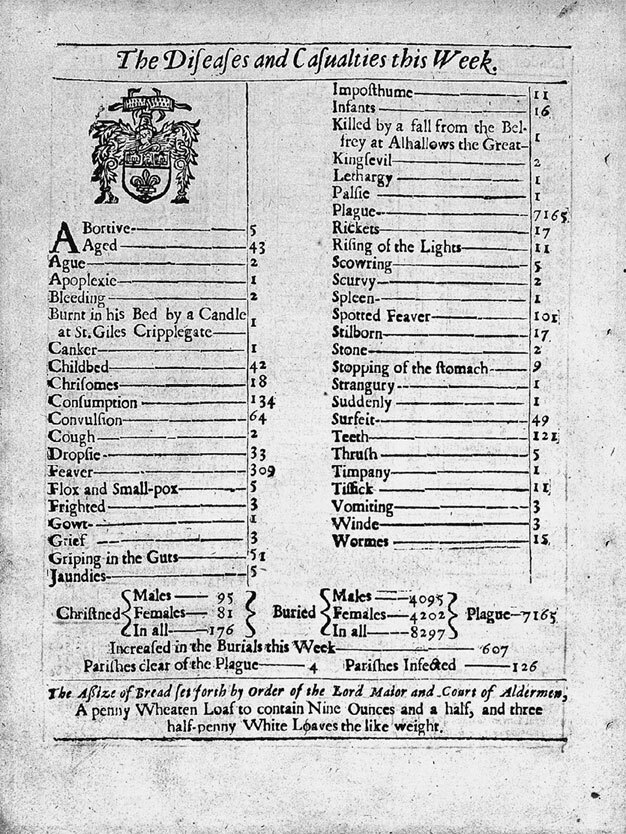 The Diſeaſes and Caſualties this Week.
ABortive 5
Aged 43
Ague 2
Apoplexie 1
Bleeding 2
Burnt in his Bed by a Candle
at St. Giles Cripplegate 1
Canker 1
Childbed 42
Chriſomes 18
Conſumption 134
Convulſion 64
Cough 2
Dropſie 33
Feaver 309
Flox and Small-pox 5
Frighted 3
Gowt 1
Grief 3
Griping in the Guts 51
Jaundies 5
Impoſthume 11
Infants 16
Killed by a fall from the Bel-
frey at Alhallows the Great 1
Kingſevil 2
Lethargy 1
Palſie 1
Plague 7165
Rickets 17
Riſing of the Lights 11
Scowring 5
Scurvy 2
Spleen 1
Spotted Feaver 101
Stilborn 17
Stone 2
Stopping of the ſtomach 9
Strangury 1
Suddenly 1
Surfeit 49
Teeth 121
Thruſh 5
Timpany 1
Tiſſick 11
Vomiting 3
Winde 3
Wormes 15
Chriſtned { Males 95 Females 81 In all 176 }
Buried { Males 4095 Females 4202 In all 8297 } Plague 7165
Increaſed in the Burials this Week 607
Pariſhes clear of the Plague 4 Pariſhes Infected 126
The Aſſize of Bread ſet forth by Order of the Lord Maior and Court of Aldermen,
A penny Wheaten Loaf to contain Nine Ounces and a half, and three
half-penny White Loaves the like weight.